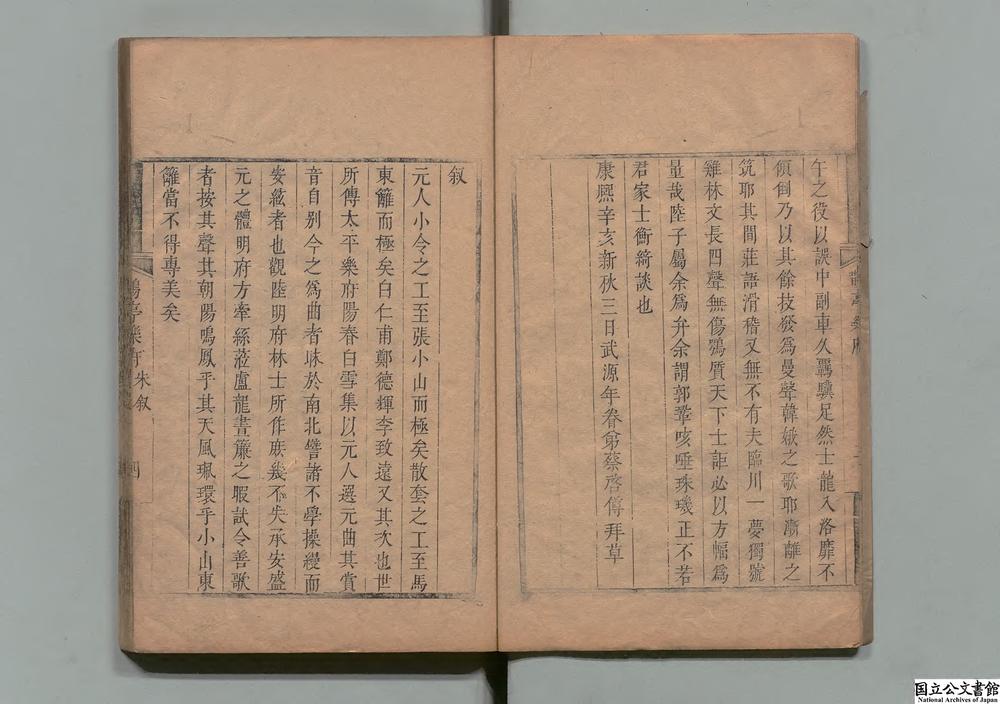 午之役以誤中副車久羈驥足然士龍入洛靡不
傾倒乃以其餘技發爲曼聲韓娥之歌耶漸離之
筑耶其間莊語滑稽又無不有夫臨川一夢獨號
雞林文長四聲無傷鶚質天下士詎必以方幅爲
量哉陸子屬余爲弁余謂郭鞏咳唾珠璣正不若
君家士衡綺談也
康熙辛亥新秋三日武源年眷弟蔡啓僔拜草
叙
元人小令之工至張小山而極矣散套之工至馬
東籬而極矣白仁甫鄭德輝李致遠又其次也世
所傳太平樂府陽春白雪集以元人選元曲其賞
音自别今之爲曲者昧於南北譬諸不學操縵而
安絃者也觀陸明府林士所作庶幾不失承安盛
元之體明府方牽絲蒞盧龍晝簾之暇試令善歌
者按其聲其朝陽鳴鳳乎其天風珮環乎小山東
籬當不得專美矣
亭樂府 朱叙
四
国立公文書館
National Archives of Japan